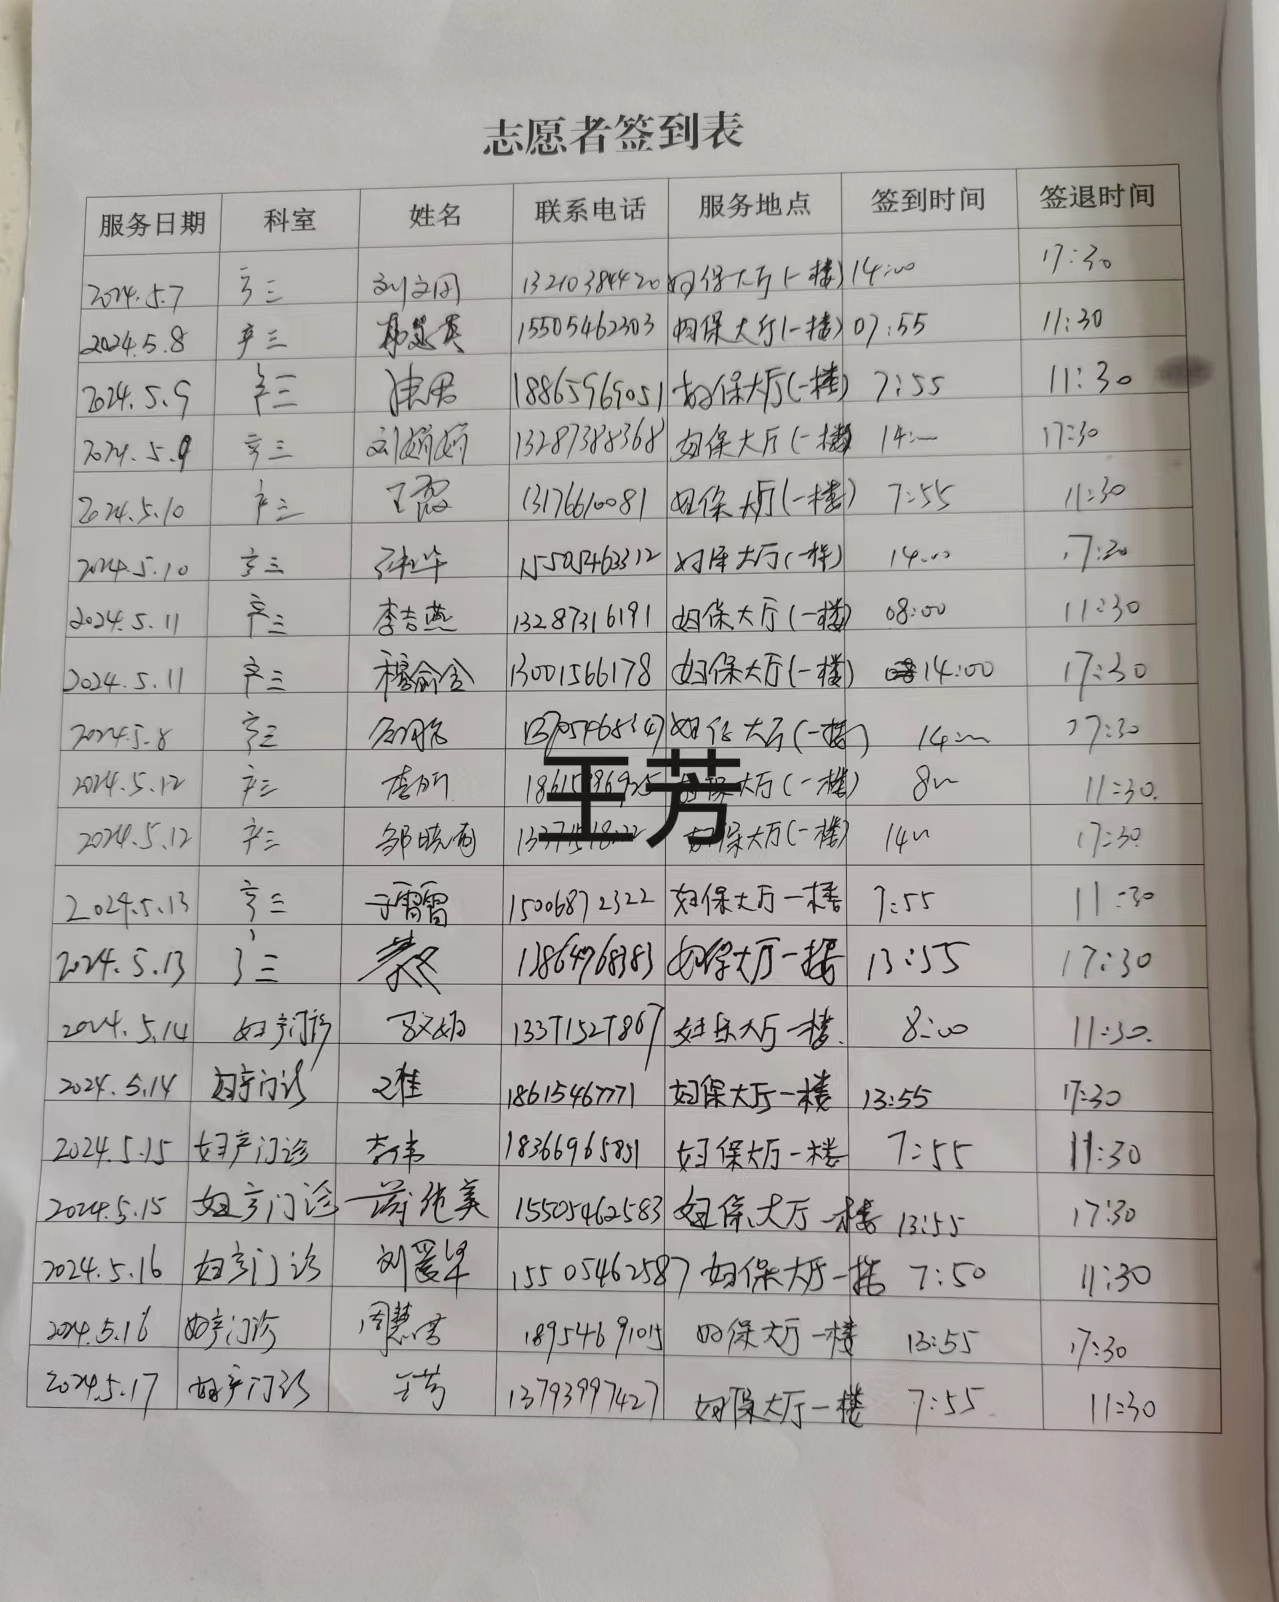 志愿者签到表
服务日期 科室 姓名 联系电话 服务地点 签到时间 签退时间
2024.5.7 产三 刘文国 13210384420 妇保大厅(一楼) 14:00 17:30
2024.5.8 产三 15505462303 妇保大厅(一楼) 07:55 11:30
2024.5.9 产三 18865969051 妇保大厅(一楼) 7:55 11:30
2024.5.9 产三 刘娟娟 13287388368 妇保大厅(一楼) 14:00 17:30
2024.5.10 产三 王霞 13176610081 妇保大厅(一楼) 7:55 11:30
2024.5.10 产三 15505463312 妇保大厅(一楼) 14:00 17:30
2024.5.11 产三 李吉燕 13287316191 妇保大厅(一楼) 08:00 11:30
2024.5.11 产三 13001566178 妇保大厅(一楼) 14:00 17:30
2024.5.8 产三 妇保大厅(一楼) 14:00 17:30
2024.5.12 产三 妇保大厅(一楼) 8:00 11:30
王芳
2024.5.12 产三 邹晓雨 妇保大厅(一楼) 14:00 17:30
2024.5.13 产三 于雷雷 15006872322 妇保大厅一楼 7:55 11:30
2024.5.13 产三 13864768383 妇保大厅一楼 13:55 17:30
2024.5.14 妇产门诊 13371527867 妇保大厅一楼 8:00 11:30
2024.5.14 妇产门诊 18615467771 妇保大厅一楼 13:55 17:30
2024.5.15 妇产门诊 李伟 18366965851 妇保大厅一楼 7:55 11:30
2024.5.15 妇产门诊 15505462583 妇保大厅一楼 13:55 17:30
2024.5.16 妇产门诊 刘爱华 15505462587 妇保大厅一楼 7:50 11:30
2024.5.16 妇产门诊 18954691015 妇保大厅一楼 13:55 17:30
2024.5.17 妇产门诊 王芳 13793997427 妇保大厅一楼 7:55 11:30